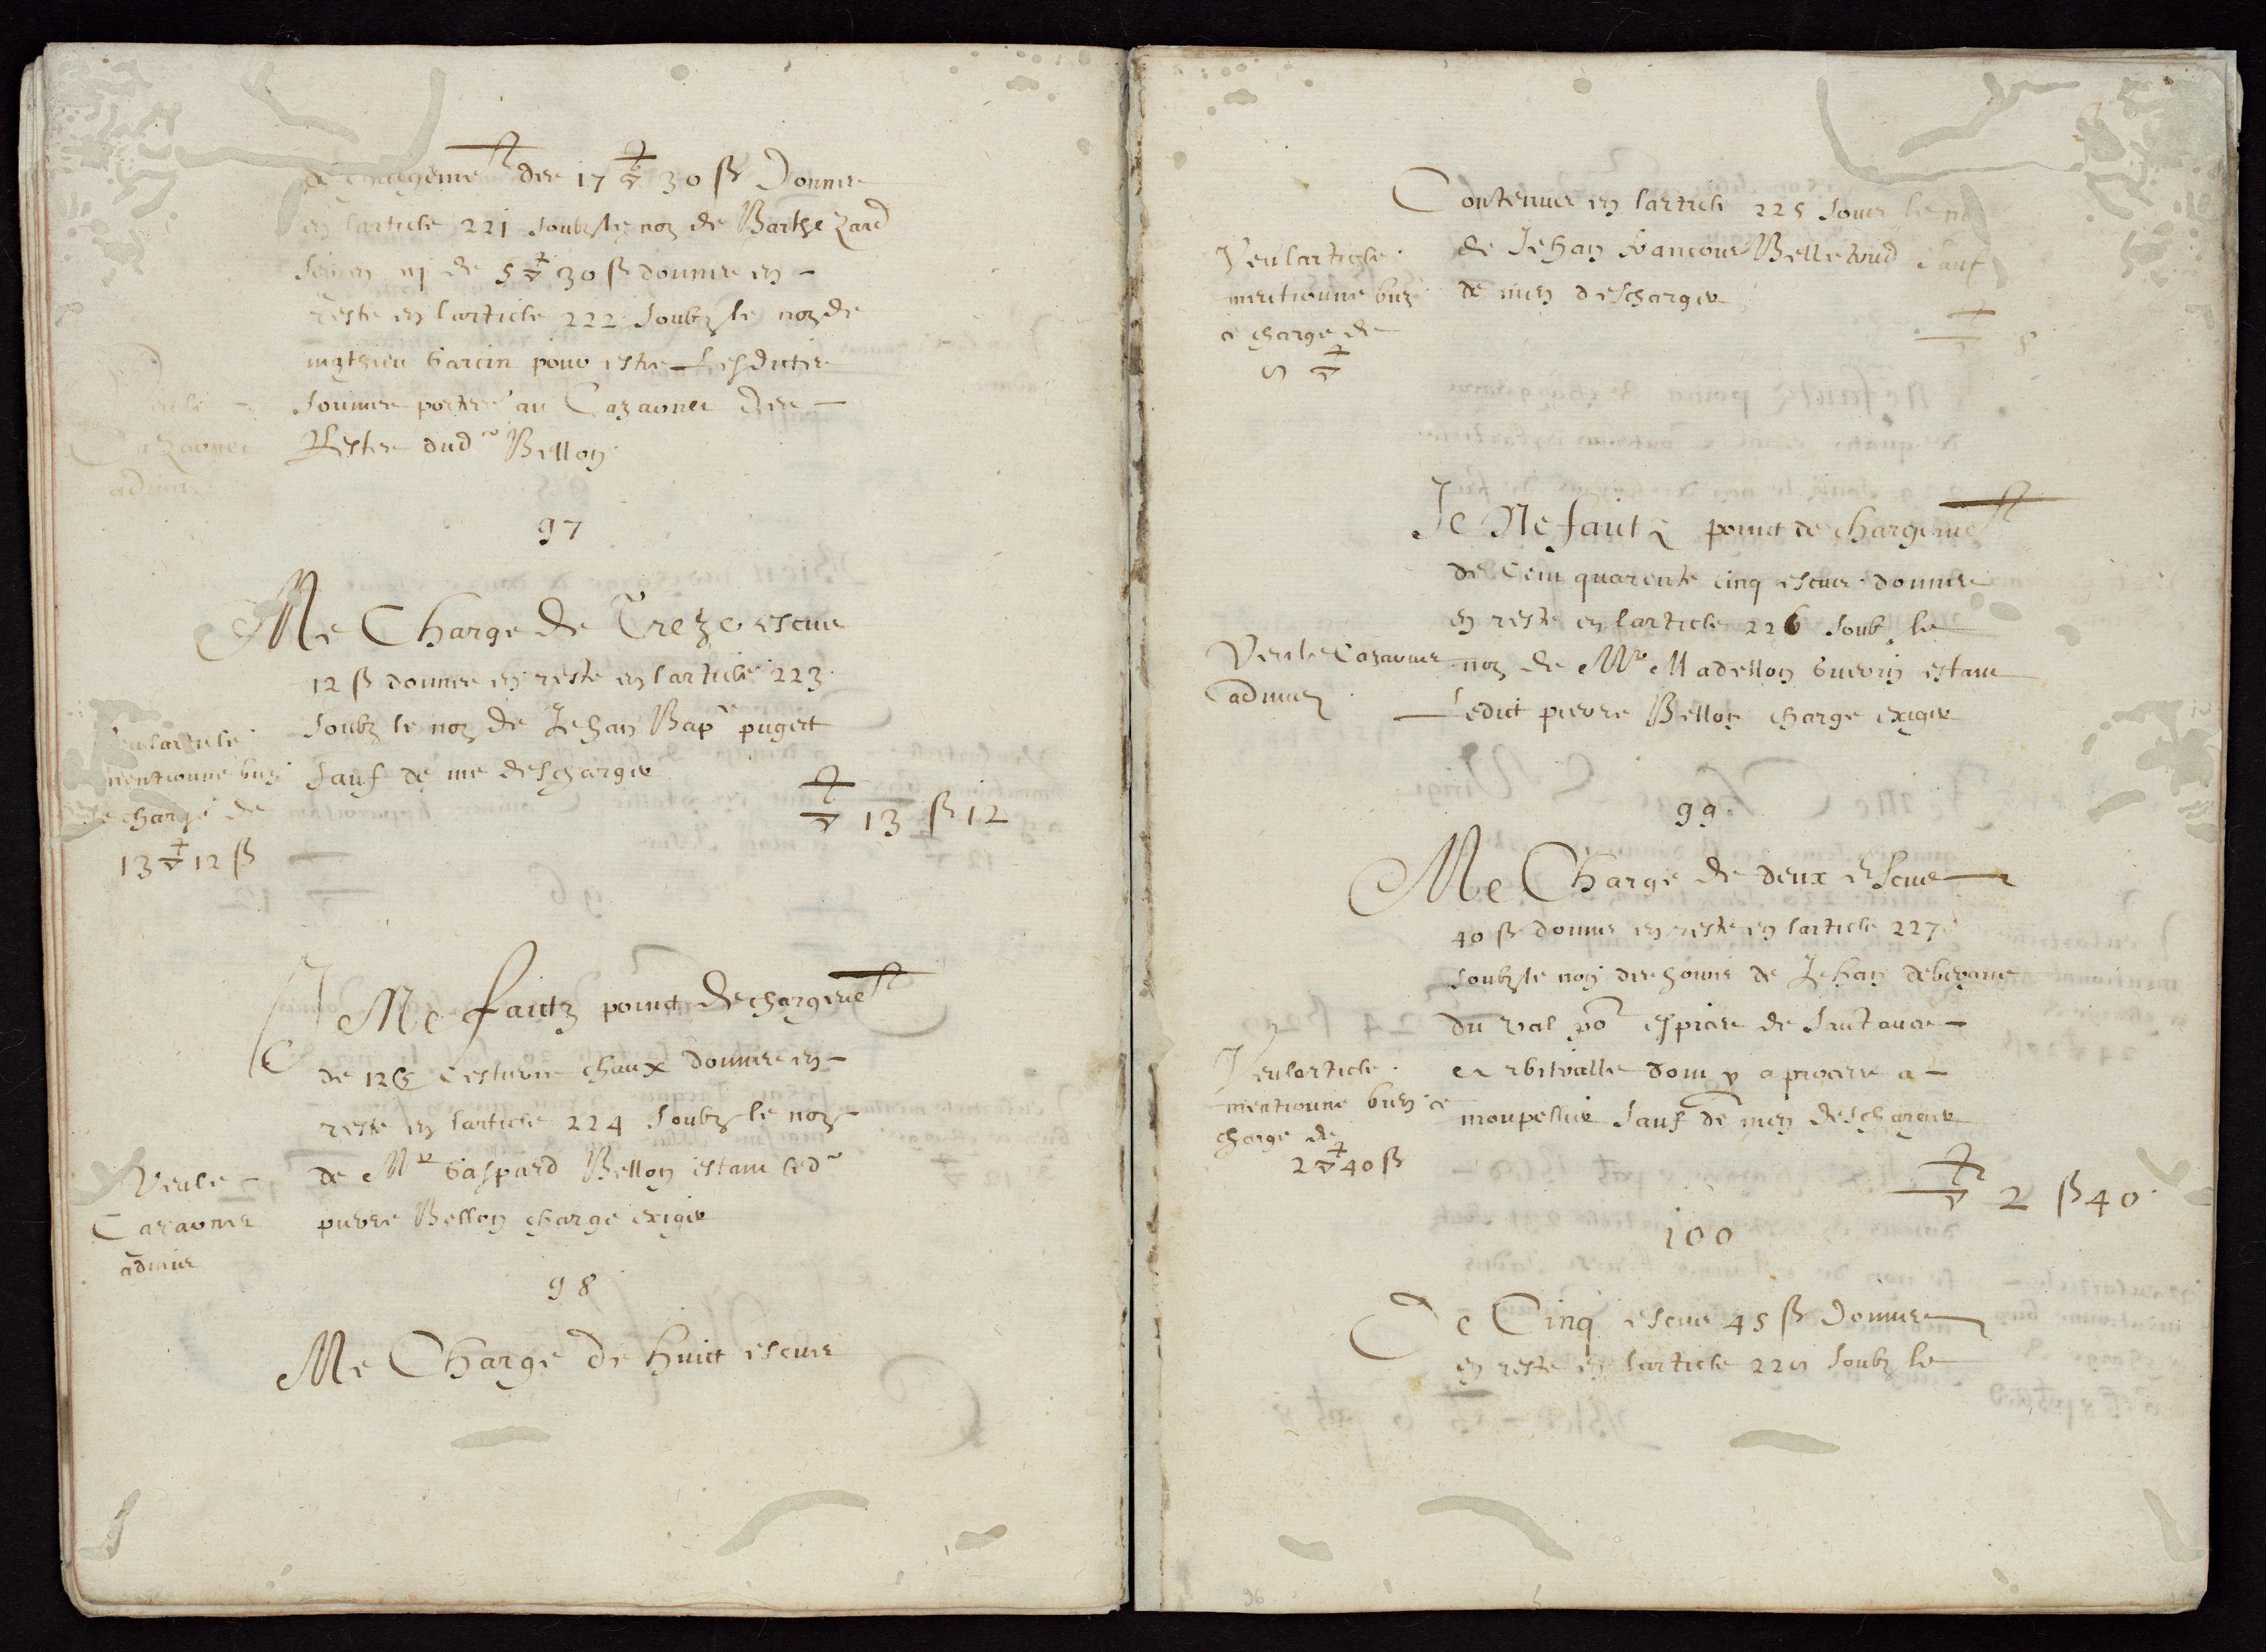 de chargement des 17 ▽ 30 ß Donnes
en larticle 221 soubz le noz de Barthezard
ny de 5 ▽ 30 ß donnes en
reste en larticle 222 soubz le noz de
mathieu Garcin pour estre lesdictes
sommes portees au Cazaonet des
Restes dud Bellon
Veu le
Cazaonet
admis
97
Me Charge de Treze escus
12 ß donnes en reste en larticle 223
soubz le noz de Jehan Bap^e puget
sauf de me descharger
▽ 13 ß 12
Veu larticle
mentionne bien
se charge de
13 ▽ 12 ß
Je Me faictz poinct de chargemet
de 12 chaux donnes en
reste en larticle 224 soubz le noz
de M^r Gaspard Bellon estant led
pierre Bellon charge exiger
Veu le
Cazaonet
admis
98
Me Charge de huict escus
Contenues en larticle 225 soubz le no
de Jehan francois Belleboud sauf
de men descharger
▽ 5
Veu larticle
mentionne bien
ce charge de
5 ▽
Je Ne faictz poinct de chargemet
de Cent quarente cinq escus donnes
en reste en larticle 226 soubz le
noz de M^r Madellon Guerin estant
ledict pierre Bellon charge exiger
Veu le Cazaonet
admis
99
Me Charge de deux escus
40 ß donnes en reste en larticle 227
soubz le noz des hoirs de Jehan
du val po^r espices de
et dont y a proces a
monpellier sauf de men descharger
▽ 2 ß 40
Veu larticle
mentionne bien ce
charge de
2 ▽ 40 ß
100
De Cinq escus 45 ß Donnes
en reste en larticle 228 soubz le
96